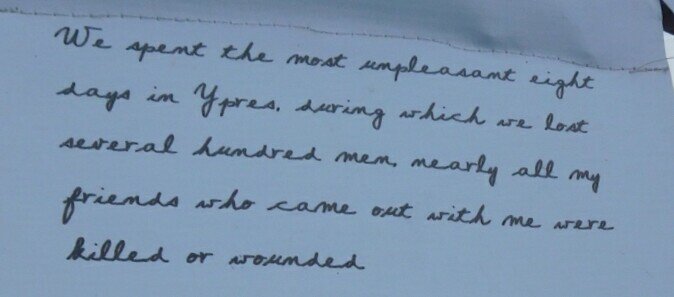 We spent the most unpleasant eight
days in Ypres, during which we lost
several hundred men, nearly all my
friends who came out with me were
killed or wounded